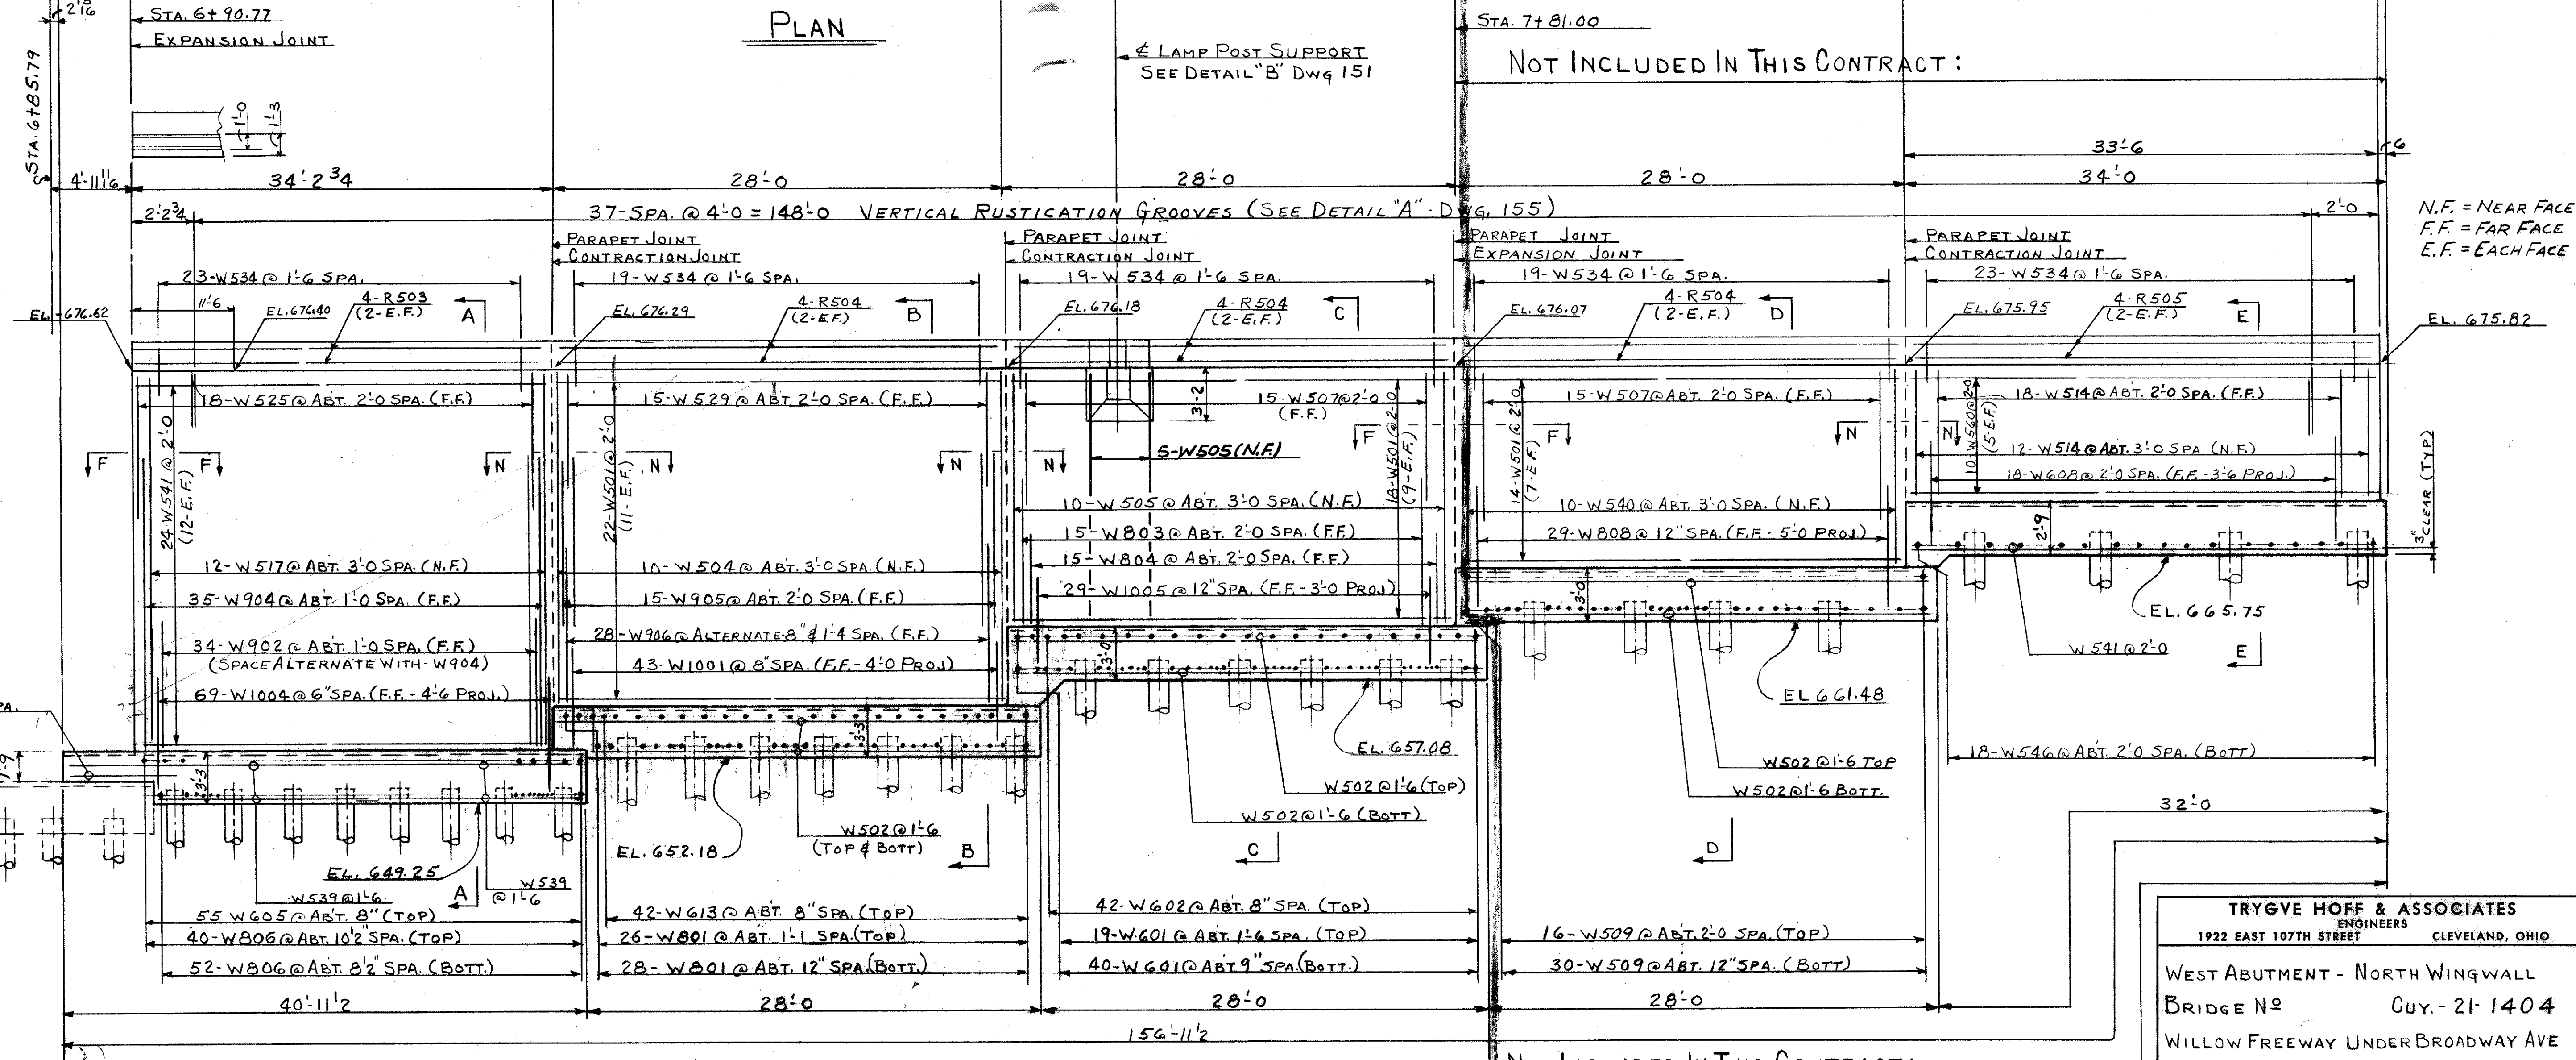 2 1/16
STA. 6+90.77
EXPANSION JOINT
STA. 6+85.79
PLAN
℄ LAMP POST SUPPORT
SEE DETAIL "B" DWG 151
STA. 7+81.00
NOT INCLUDED IN THIS CONTRACT:
1'-0
1'-3
33'-6
6
4'-11 11/16
34'-2 3/4
28'-0
28'-0
28'-0
34'-0
2'-2 3/4
37-SPA. @ 4'-0 = 148'-0 VERTICAL RUSTICATION GROOVES (SEE DETAIL "A" - DWG. 155)
2'-0
N.F. = NEAR FACE
F.F. = FAR FACE
E.F. = EACH FACE
PARAPET JOINT
CONTRACTION JOINT
PARAPET JOINT
CONTRACTION JOINT
PARAPET JOINT
EXPANSION JOINT
PARAPET JOINT
CONTRACTION JOINT
23-W534 @ 1'-6 SPA.
19-W534 @ 1'-6 SPA.
19-W534 @ 1'-6 SPA.
19-W534 @ 1'-6 SPA.
23-W534 @ 1'-6 SPA.
11'-6
EL. 676.62
EL. 676.40
4-R503
(2-E.F.)
A
EL. 676.29
4-R504
(2-E.F.)
B
EL. 676.18
4-R504
(2-E.F.)
C
EL. 676.07
4-R504
(2-E.F.)
D
EL. 675.95
4-R505
(2-E.F.)
E
EL. 675.82
18-W525 @ ABT. 2'-0 SPA. (F.F.)
15-W529 @ ABT. 2'-0 SPA. (F.F.)
3'-2
15-W507 @ 2'-0
(F.F.)
15-W507 @ ABT. 2'-0 SPA. (F.F.)
18-W514 @ ABT. 2'-0 SPA. (F.F.)
24-W541 @ 2'-0
(12-E.F.)
22-W501 @ 2'-0
(11-E.F.)
18-W501 @ 2'-0
(9-E.F.)
14-W501 @ 2'-0
(7-E.F.)
10-W560 @ 2'-0
(5-E.F.)
F
F
N
N
N
N
F
F
N
N
5-W505 (N.F.)
12-W514 @ ABT. 3'-0 SPA. (N.F.)
18-W608 @ 2'-0 SPA. (F.F. - 3'-6 PROJ.)
3" CLEAR (TYP.)
10-W505 @ ABT. 3'-0 SPA. (N.F.)
10-W540 @ ABT. 3'-0 SPA. (N.F.)
15-W803 @ ABT. 2'-0 SPA. (F.F.)
29-W808 @ 12" SPA. (F.F. - 5'-0 PROJ.)
2'-9
12-W517 @ ABT. 3'-0 SPA. (N.F.)
10-W504 @ ABT. 3'-0 SPA. (N.F.)
15-W804 @ ABT. 2'-0 SPA. (F.F.)
35-W904 @ ABT. 1'-0 SPA. (F.F.)
15-W905 @ ABT. 2'-0 SPA. (F.F.)
29-W1005 @ 12" SPA. (F.F. - 3'-0 PROJ.)
3'-0
EL. 665.75
34-W902 @ ABT. 1'-0 SPA. (F.F.)
(SPACE ALTERNATE WITH - W904)
28-W906 @ ALTERNATE 8" & 1'-4 SPA. (F.F.)
43-W1001 @ 8" SPA. (F.F. - 4'-0 PROJ.)
3'-0
W541 @ 2'-0
E
69-W1004 @ 6" SPA. (F.F. - 4'-6 PROJ.)
EL 661.48
3'-3
EL. 657.08
3'-3
18-W546 @ ABT. 2'-0 SPA. (BOTT)
W502 @ 1'-6 (TOP)
W502 @ 1'-6 (BOTT)
W502 @ 1'-6 TOP
W502 @ 1'-6 BOTT.
32'-0
W502 @ 1'-6
(TOP & BOTT)
EL. 652.18
B
C
D
EL. 649.25
W539 @ 1'-6
A
W539
@ 1'-6
55 W605 @ ABT. 8" (TOP)
40-W806 @ ABT. 10 1/2" SPA. (TOP)
52-W806 @ ABT. 8 1/2" SPA. (BOTT.)
42-W613 @ ABT. 8" SPA. (TOP)
26-W801 @ ABT. 1'-1 SPA. (TOP)
28-W801 @ ABT. 12" SPA. (BOTT.)
42-W602 @ ABT. 8" SPA. (TOP)
19-W601 @ ABT. 1'-6 SPA. (TOP)
40-W601 @ ABT 9" SPA. (BOTT.)
16-W509 @ ABT. 2'-0 SPA. (TOP)
30-W509 @ ABT. 12" SPA. (BOTT)
40'-11 1/2
28'-0
28'-0
28'-0
156'-11 1/2
TRYGVE HOFF & ASSOCIATES
ENGINEERS
1922 EAST 107TH STREET CLEVELAND, OHIO
WEST ABUTMENT - NORTH WINGWALL
BRIDGE Nº CUY.-21-1404
WILLOW FREEWAY UNDER BROADWAY AVE